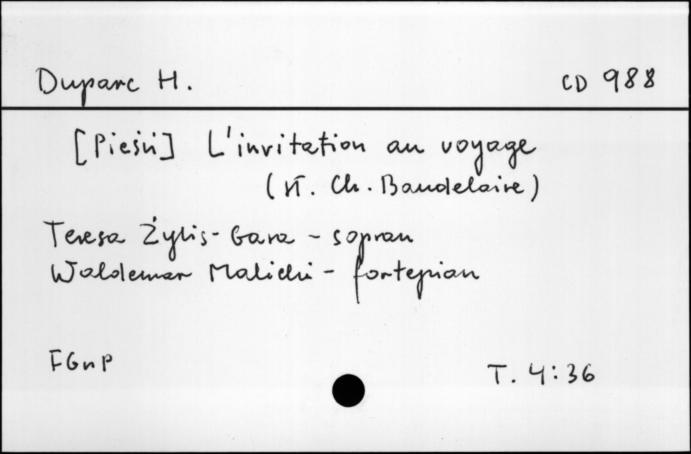 Duparc H. CD 988
[Pieśń] L'invitation au voyage
(sł. Ch. Baudelaire)
Teresa Żylis-Gara - sopran
Waldemar Malicki - fortepian
FGnP T. 4:36